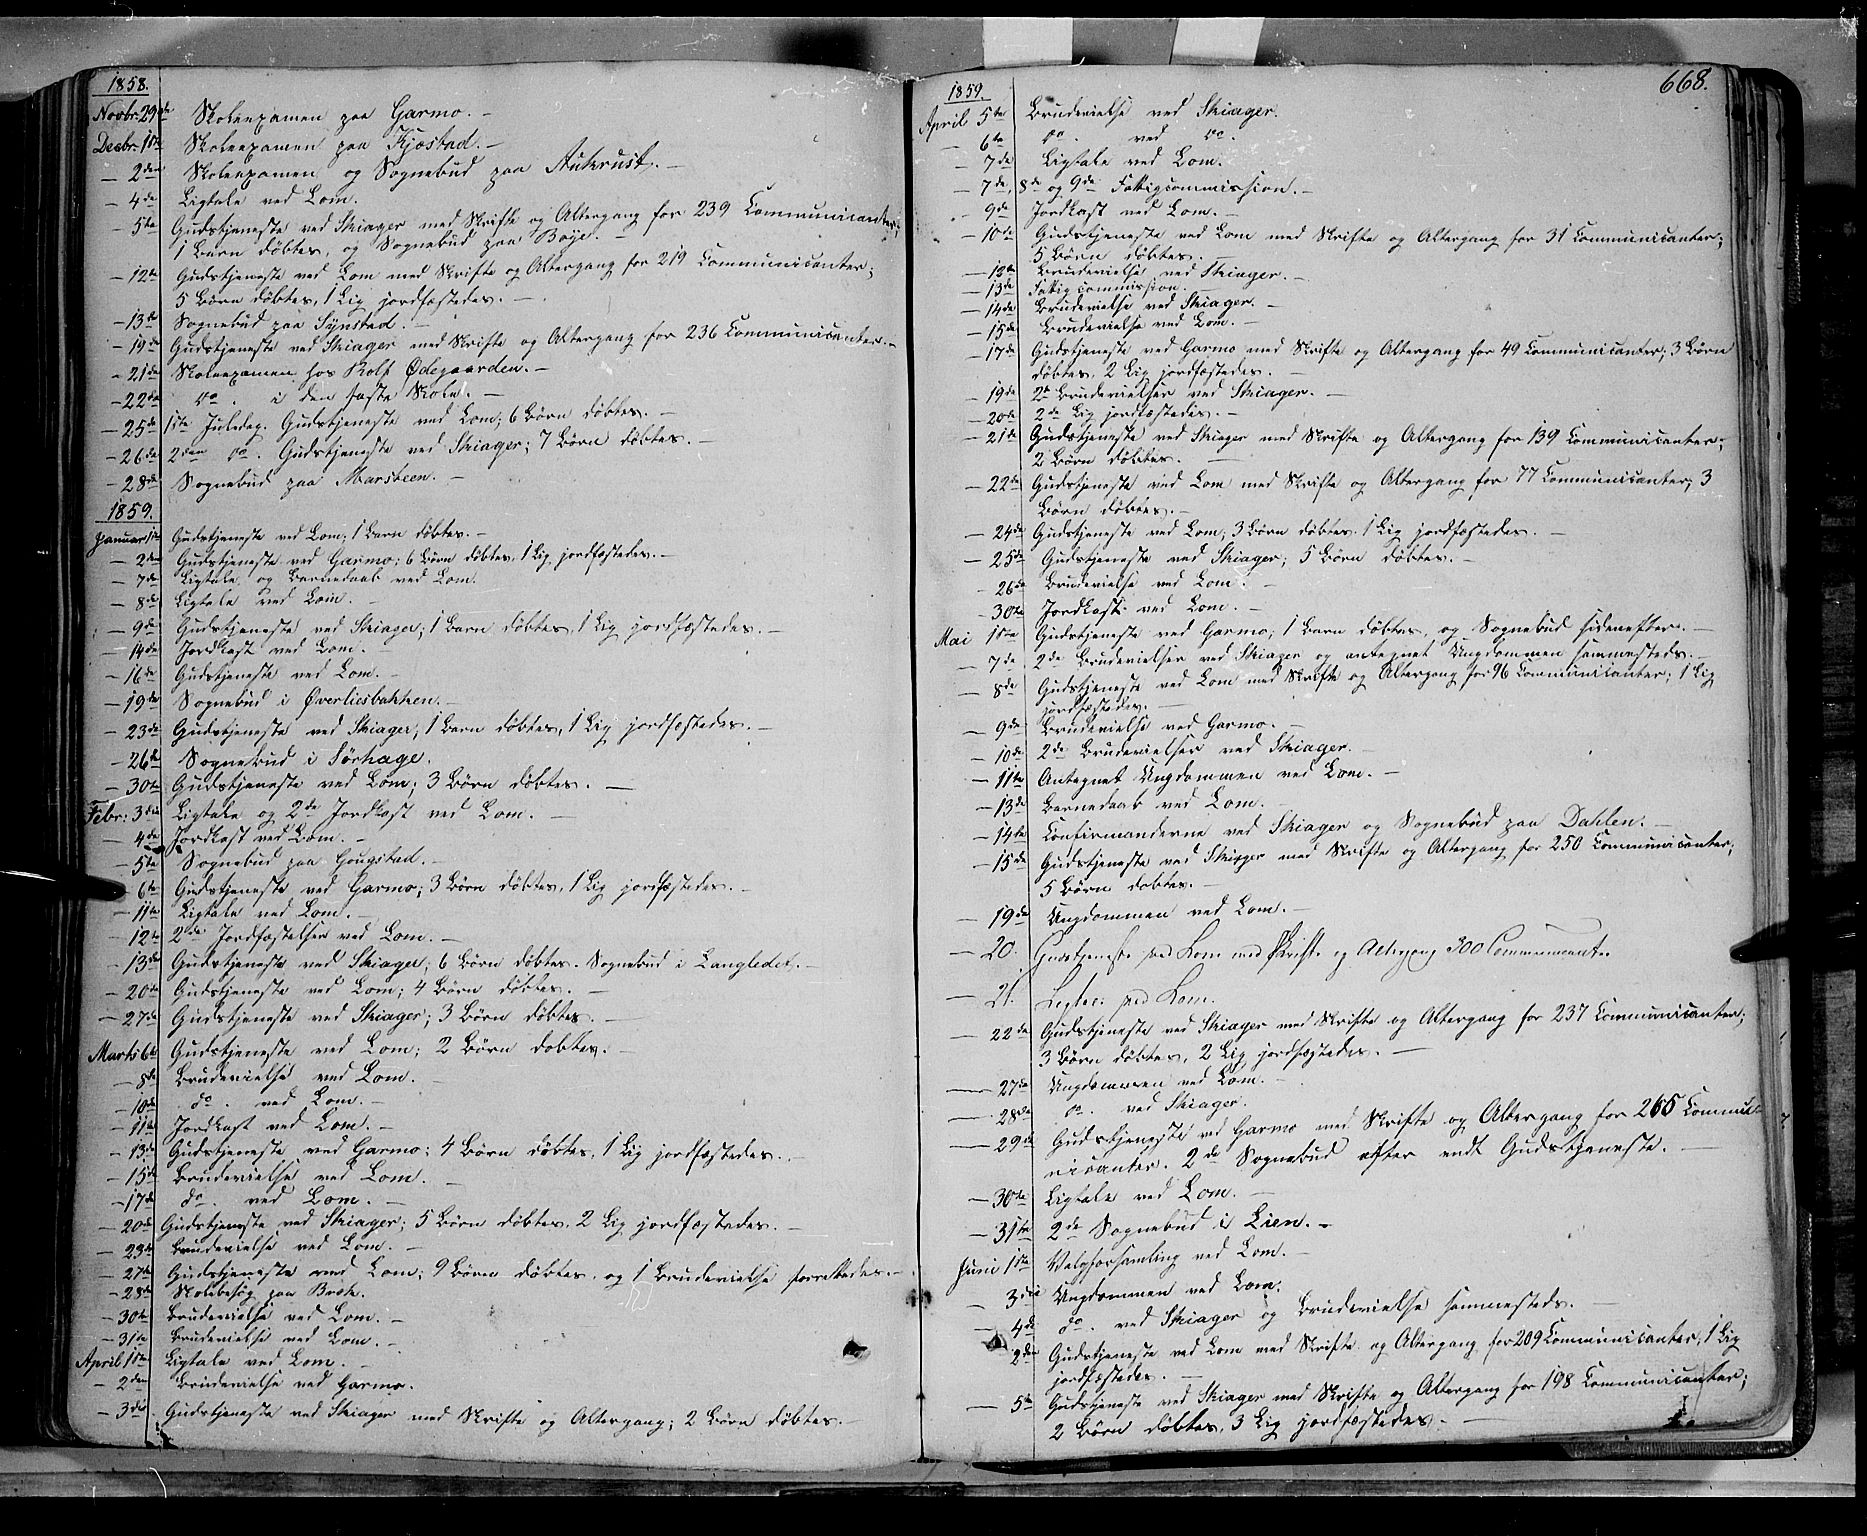 1858.
Novbr. 29de Skoleexamen paa Garmo. -
Decbr. 1ste Skoleexamen paa Kjøstad. -
- 2den Skoleexamen og Sognebud paa Aukrust. -
- 4de Ligtale ved Lom.
- 5te Gudstjeneste ved Skiager med Skrifte og Altergang for 239 Communicanter;
1 Barn døbtes, og Sognebud paa Böye. -
- 12te Gudstjeneste ved Lom med Skrifte og Altergang for 219 Communicanter;
5 Børn døbtes, 1 Lig jordfæstedes. -
- 13de Sognebud paa Synstad. -
- 19de Gudstjeneste ved Skiager med Skrifte og Altergang for 236 Communicanter. -
- 21de Skoleexamen hos Rolf Ødegaarden. -
- 22de do. i den faste Skole. -
- 25de 1ste Juledag. Gudstjeneste ved Lom; 6 Børn døbtes. -
- 26de 2den do. Gudstjeneste ved Skiager; 7 Børn døbtes. -
- 28de Sognebud paa Marsteen. -
1859.
Januar 1ste Gudstjeneste ved Lom; 1 Barn døbtes. -
- 2den Gudstjeneste ved Garmo; 6 Børn døbtes, 1 Lig jordfæstedes. -
- 7de Ligtale og Barnedaab ved Lom.
- 8de Ligtale ved Lom. -
- 9de Gudstjeneste ved Skiager; 1 Barn døbtes, 1 Lig jordfæstedes. -
- 14de Jordkast ved Lom. -
- 16de Gudstjeneste ved Lom. -
- 19de Sognebud i Øverliesbakken. -
- 23de Gudstjeneste ved Skiager; 1 Barn døbtes, 1 Lig jordfæstedes. -
- 26de Sognebud i Sørhage.
- 30te Gudstjeneste ved Lom; 3 Børn døbtes. -
Febr: 3die Ligtale og 2de Jordkast ved Lom. -
- 4de Jordkast ved Lom. -
- 5te Sognebud paa Gougstad. -
- 6te Gudstjeneste ved Garmo; 3 Børn døbtes, 1 Lig jordfæstedes. -
- 11te Ligtale ved Lom. -
- 12te 2de Jordfæstelser ved Lom. -
- 13de Gudstjeneste ved Skiager; 6 Børn døbtes. Sognebud i Langledet. -
- 20de Gudstjeneste ved Lom; 4 Børn døbtes. -
- 27de Gudstjeneste ved Skiager; 3 Børn døbtes. -
Marts 6te Gudstjeneste ved Lom; 2 Børn døbtes. -
- 8de Brudevielse ved Lom. -
- 10de do. ved Lom. -
- 11te Jordkast ved Lom. -
- 13de Gudstjeneste ved Garmo; 4 Børn døbtes, 1 Lig jordfæstedes. -
- 15de Brudevielse ved Lom. -
- 17de do. ved Lom. -
- 20de Gudstjeneste ved Skiager; 5 Børn døbtes, 2 Lig jordfæstedes. -
- 23de Brudevielse ved Lom. -
- 27de Gudstjeneste ved Lom; 9 Børn døbtes, og 1 Brudevielse forrettedes. -
- 28de Skolebesøg paa Brek.
- 30te Brudevielse ved Lom. -
- 31te Brudevielse ved Lom. -
April 1ste Ligtale ved Lom. -
- 2den Brudevielse ved Garmo.
- 3die Gudstjeneste ved Skiager med Skrifte og Altergang; 2 Børn døbtes. -
668.
1859.
April 5te Brudevielse ved Skiager.
- 6te do. ved do.
- 7de Ligtale ved Lom.
- 7de, 8de og 9de Fattigcommission. -
- 9de Jordkast ved Lom. -
- 10de Gudstjeneste ved Lom med Skrifte og Altergang for 31 Communicanter;
5 Børn døbtes. -
- 12te Brudevielse ved Skiager. -
- 13de Fattigcommission. -
- 14de Brudevielse ved Skiager. -
- 15de Brudevielse ved Lom. -
- 17de Gudstjeneste ved Garmo med Skrifte og Altergang for 49 Communicanter; 3 Børn
døbtes, 2 Lig jordfæstedes. -
- 19de 2de Brudevielser ved Skiager. -
- 20de 2de Lig jordfæstedes. -
- 21de Gudstjeneste ved Skiager med Skrifte og Altergang for 139 Communicanter;
2 Børn døbtes. -
- 22de Gudstjeneste ved Lom med Skrifte og Altergang for 77 Communicanter; 3
Børn døbtes. -
- 24de Gudstjeneste ved Lom; 3 Børn døbtes, 1 Lig jordfæstedes. -
- 25de Gudstjeneste ved Skiager; 5 Børn døbtes. -
- 26de Brudevielse ved Lom. -
- 30te Jordkast ved Lom. -
Mai 1ste Gudstjeneste ved Garmo; 1 Barn døbtes, og Sognebud sidenefter. -
- 7de 2de Brudevielser ved Skiager og antegnet Ungdommen sammesteds. -
- 8de Gudstjeneste ved Lom med Skrifte og Altergang for 96 Communicanter; 1 Lig
jordfæstedes. -
- 9de Brudevielse ved Garmo. -
- 10de 2de Brudevielser ved Skiager. -
- 11te Antegnet Ungdommen ved Lom. -
- 13de Barnedaab ved Lom. -
- 14de Confirmanderne ved Skiager og Sognebud paa Dahlen. -
- 15de Gudstjeneste ved Skiager med Skrifte og Altergang for 250 Communicanter;
5 Børn døbtes. -
- 19de Ungdommen ved Lom. -
- 20. Gudstjeneste ved Lom med Skrift og Altergang 300 Communicanter
- 21. ved Lom.
- 22de Gudstjeneste ved Skiager med Skrifte og Altergang for 237 Communicanter;
3 Børn døbtes, 2 Lig jordfæstedes. -
- 27de Ungdommen ved Lom. -
- 28de do. ved Skiager.
- 29de Gudstjeneste ved Garmo med Skrifte og Altergang for 265 Commu-
nicanter. 2de Sognebud efter endt Gudstjeneste. -
- 30te Ligtale ved Lom. -
- 31te 2de Sognebud i Lien. -
Juni 1ste Valgforsamling ved Lom. -
- 3die Ungdommen ved Lom.
- 4de do. ved Skiager og Brudevielse sammesteds. -
- 2den Gudstjeneste ved Lom med Skrifte og Altergang for 209 Communicanter, 1 Lig
jordfæstedes. -
- 5te Gudstjeneste ved Skiager med Skrifte og Altergang for 198 Communicanter;
2 Børn døbtes, 3 Lig jordfæstedes. -